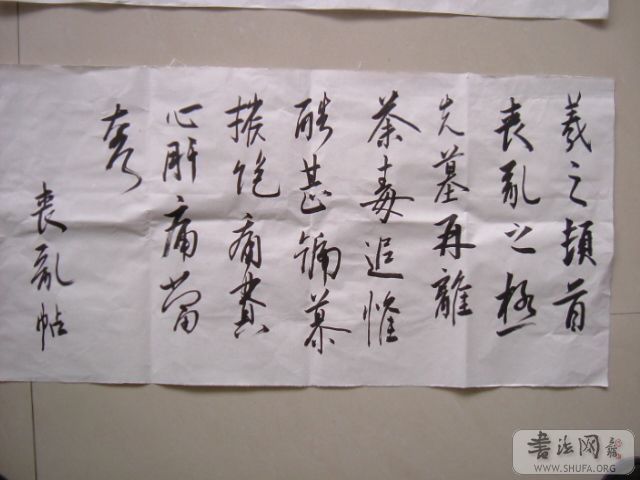 羲之頓首
喪亂之極
先墓再離
荼毒追惟
酷甚號慕
摧絶痛貫
心肝痛當
奈何
喪亂帖
書法网
WWW.SHUFA.ORG